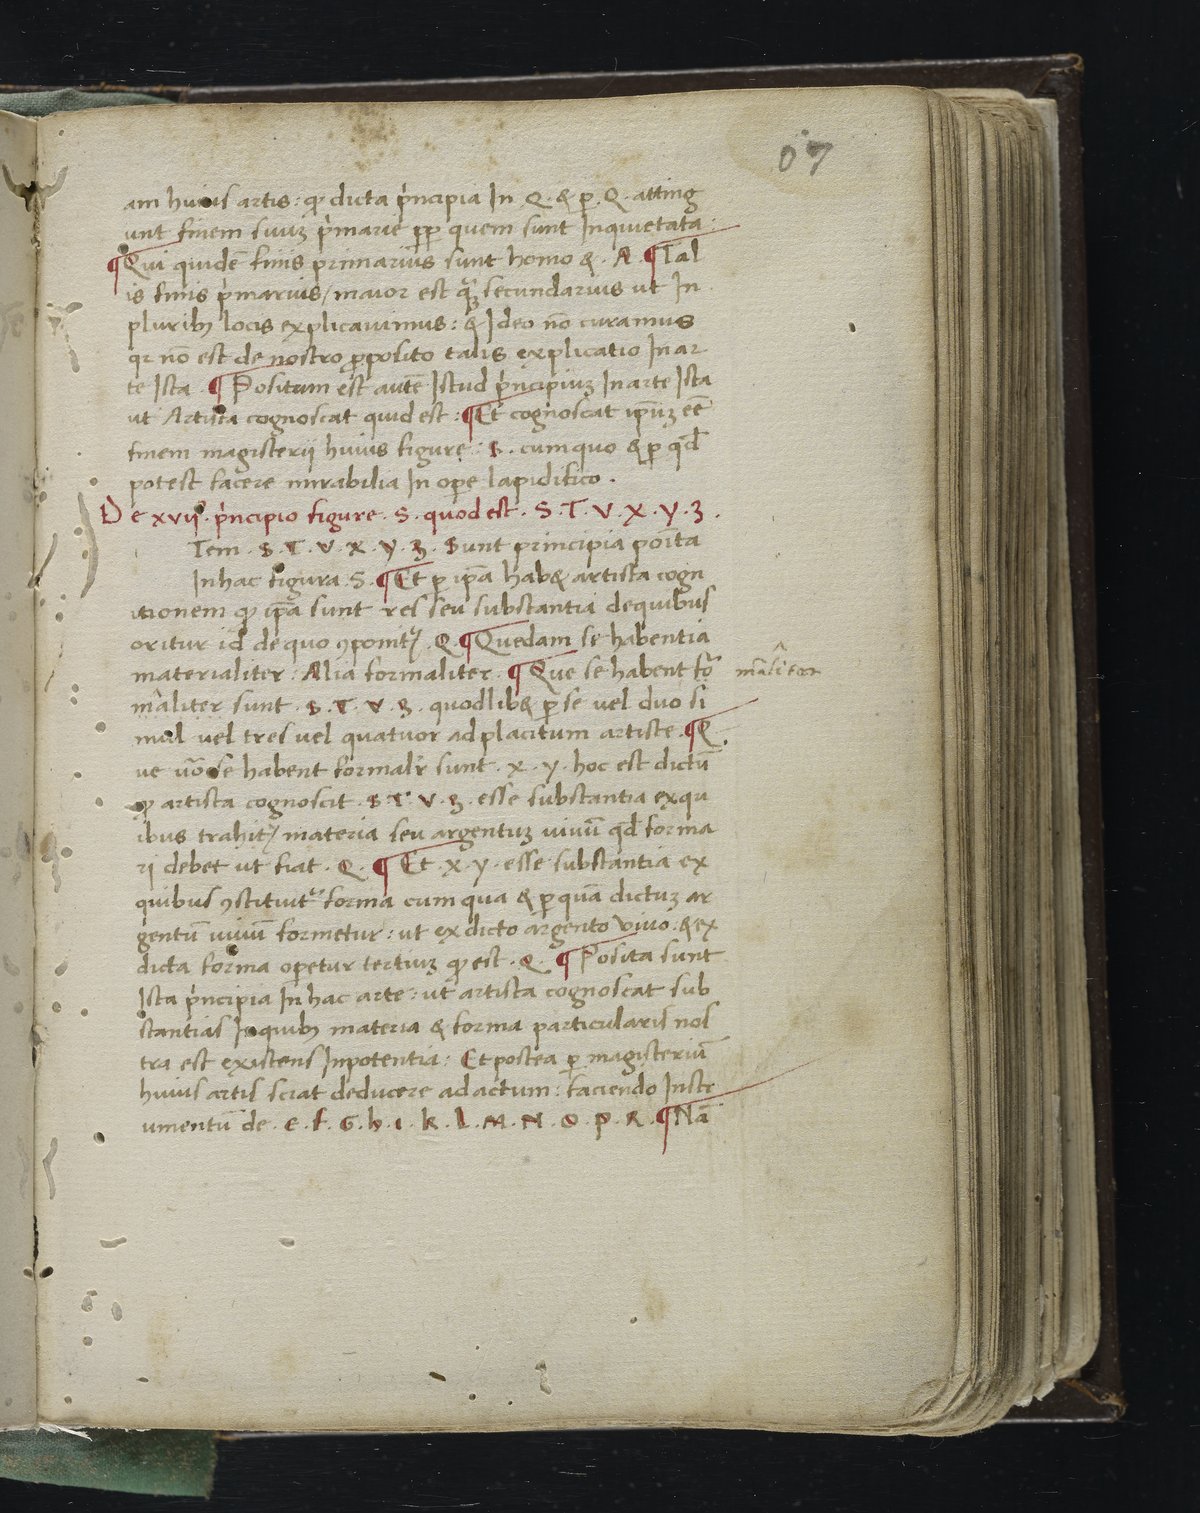 07
am huius artis: ꝙ dicta pͥncipia In Q. & ꝑ. Q. atting
unt finem suuꝫ pͥmarie ꝓp quem sunt Inquietata
¶ Qui quidē finis primarius sunt homo &. A. ¶ Tal
is finis pͥmarius / maior est qͣꝫ secundarius ut In
pluribꝫ locis explicavimus: & Ideo nō curamus
qꝛ nō est de nostro ꝓposito talis explicatio In ar
te Ista. ¶ Positum est autē Istud pͥncipiuꝫ In arte Ista
ut Artista cognoscat quid est: ¶ Et cognoscat ip̄uꝫ eē
finem magisterij huius figure. S. cum quo & ꝑ qd̄
potest facere mirabilia In oꝑe lapidifico.
De xvij. pͥncipio figure. S. quod est. S. T. V. X. y. ʒ.
Tem. S. T. V. X. y. ʒ. Sunt principia poīta
In hac figura. S. ¶ Et ꝑ ip̄a hab& artista cogn
itionem ꝙ ip̄a sunt res seu substantia de quibus
oritur id de quo ꝯponit᷑. Q. ¶ Quedam se habentia
materialiter: Alia formaliter. ¶ Que se habent fo᷑
māliter
mâliter sunt. S. T. V. ʒ. quodlib& ꝑ se vel duo si
mul vel tres vel quatuor ad placitum artiste. ¶ Q
ue u͞o se habent formalr̄ sunt. x. y. hoc est dictū
ꝙ artista cognoscit. S. T. V. ʒ. esse substantia ex qu
ibus trahit᷑ materia seu argentuꝫ vivū qd̄ forma
ri debet ut fiat. Q. ¶ Et. x. y. esse substantia ex
quibus ꝯstituit᷑ forma cum qua & ꝑ quā dictuꝫ ar
gentū vivū formetur: ut ex dicto argento vivo. & ex
dicta forma oꝑetur tertiuꝫ ꝙ est. Q. ¶ Posita sunt
Ista pͥncipia In hac arte: ut artista cognoscat sub
stantias In quibꝫ materia & forma particularis nos
tra est existens In potentia: Et postea ꝑ magisteriū
huius artis sciat deducere ad actum: faciendo Instr
umentū de. E. f. G. h. i. k. l. M. N. O. P. R. ¶ Nā